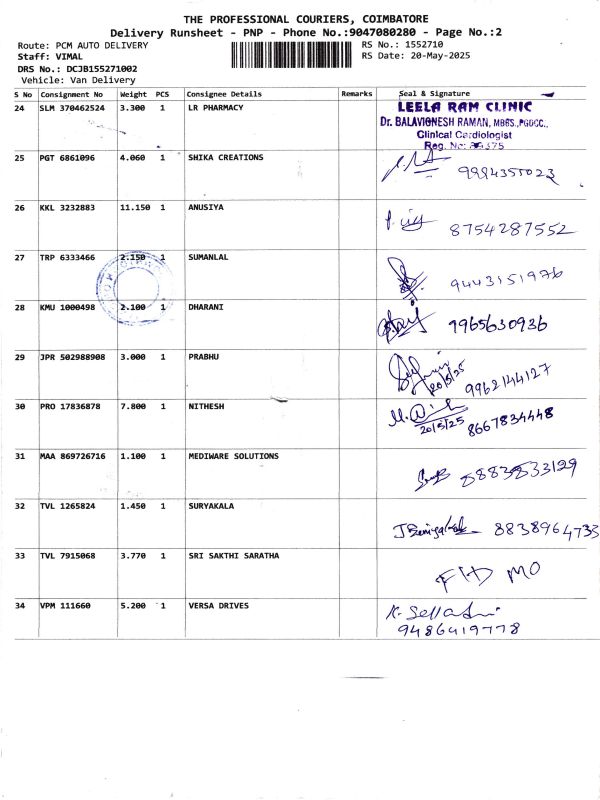 THE PROFESSIONAL COURIERS, COIMBATORE
Delivery Runsheet - PNP - Phone No.:9047080280 - Page No.:2
Route: PCM AUTO DELIVERY
RS No.: 1552710
Staff: VIMAL
RS Date: 20-May-2025
DRS No.: DCJB155271002
Vehicle: Van Delivery
S No Consignment No Weight PCS Consignee Details Remarks Seal & Signature
24 SLM 370462524 3.300 1 LR PHARMACY
LEELA RAM CLINIC
Dr. BALAVIGNESH RAMAN, MBBS., PGDCC.,
Clinical Cardiologist
Reg. No:
25 PGT 6861096 4.060 1 SHIKA CREATIONS
9994355023
26 KKL 3232883 11.150 1 ANUSIYA
8754287552
27 TRP 6333466 2.150 1 SUMANLAL
9443151976
28 KMU 1000498 2.100 1 DHARANI
9965630936
29 JPR 502988908 3.000 1 PRABHU
20/5/25
9962144127
30 PRO 17836878 7.800 1 NITHESH
20/5/25 8667834448
31 MAA 869726716 1.100 1 MEDIWARE SOLUTIONS
8883833129
32 TVL 1265824 1.450 1 SURYAKALA
8838964733
33 TVL 7915068 3.770 1 SRI SAKTHI SARATHA
MO
34 VPM 111660 5.200 1 VERSA DRIVES
9486419778